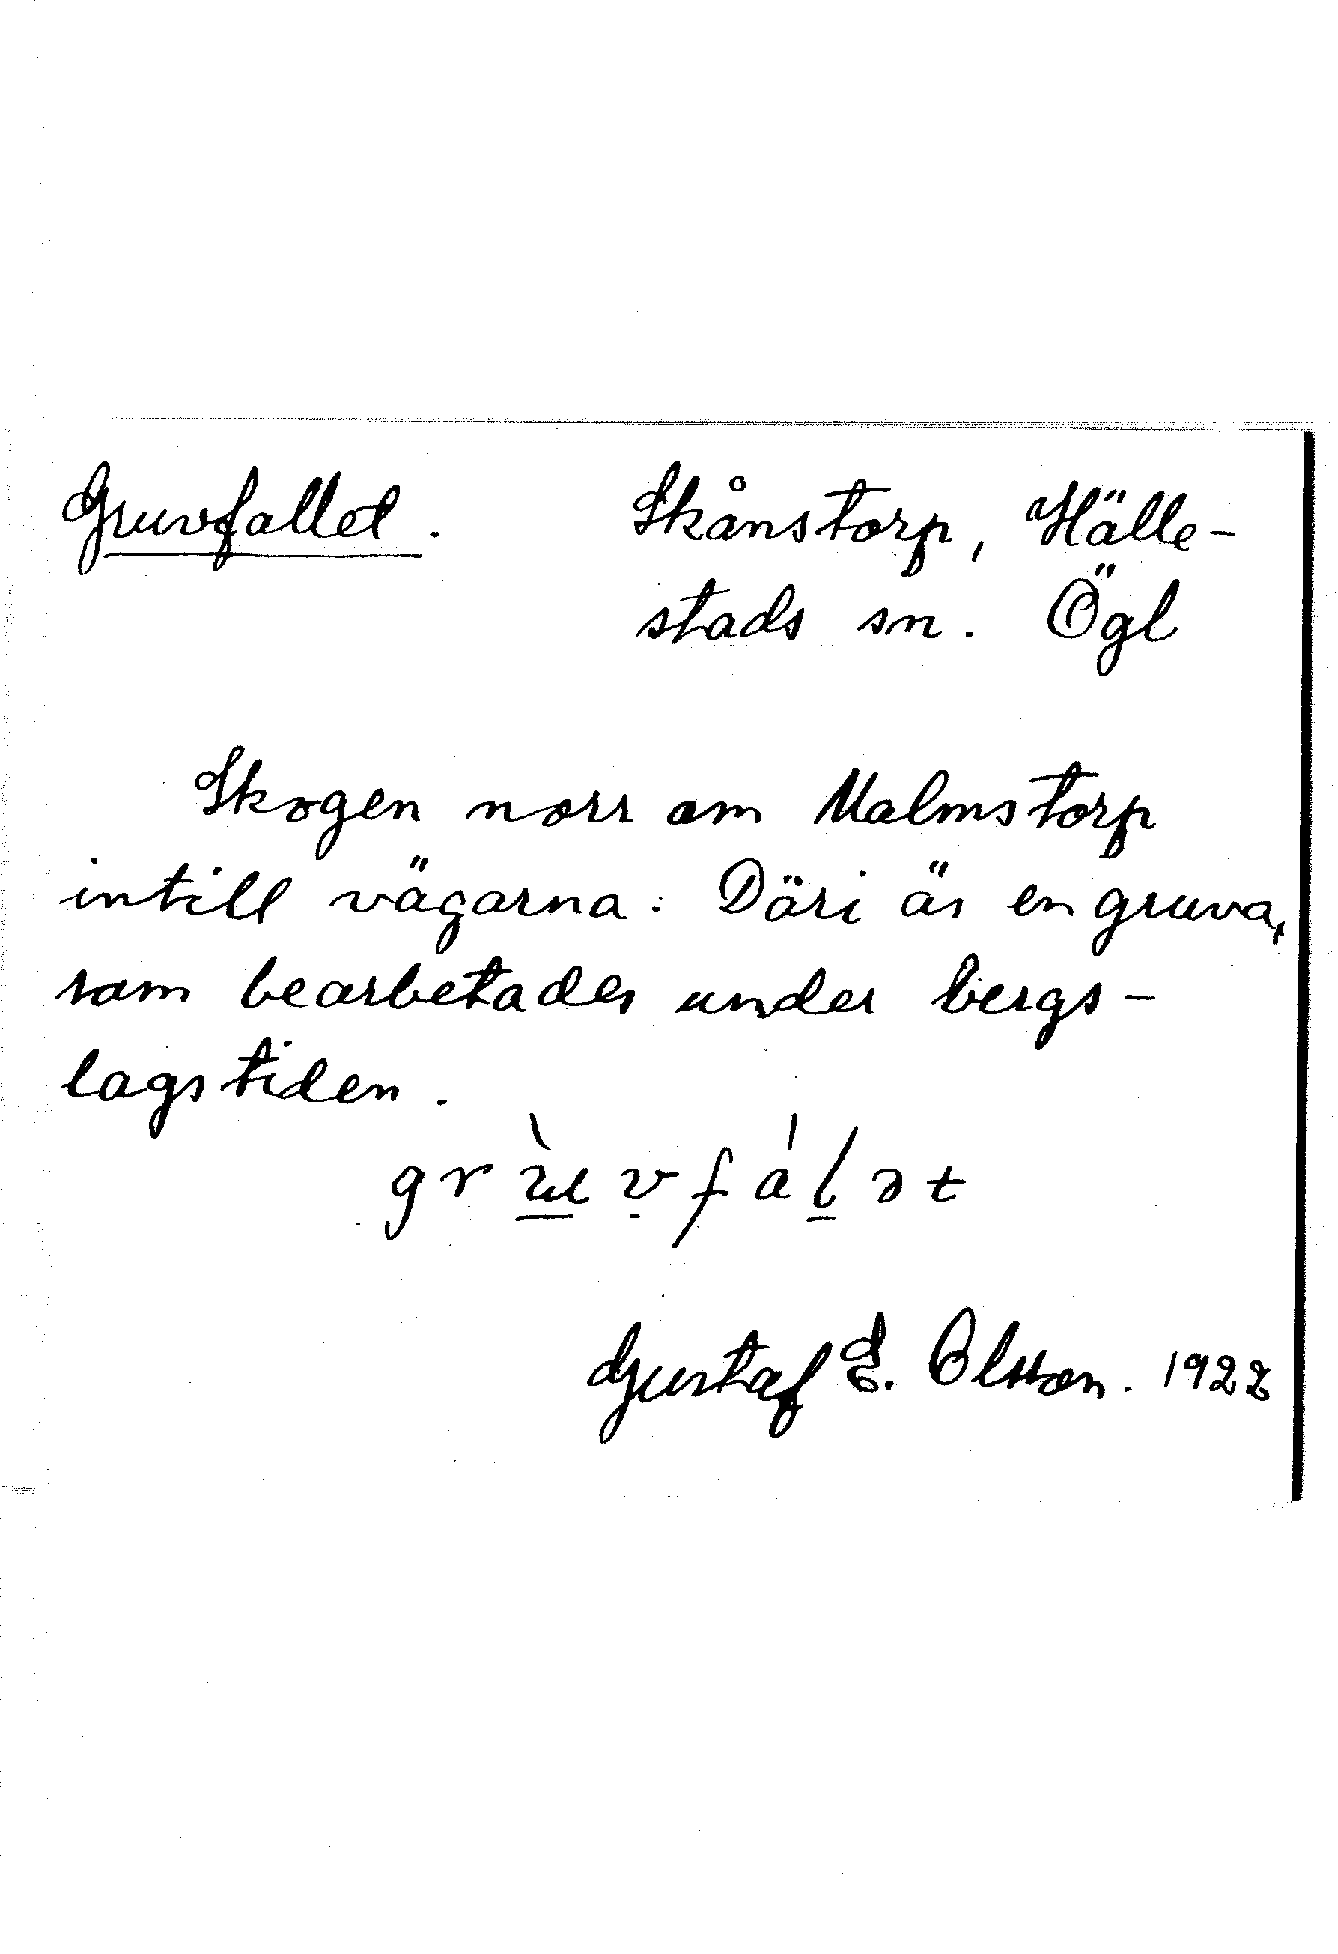 Gruvfallet. Skånstorp, Hälle-
stads sn. Ögl
Skogen norr om Malmstorp
intill vägarna. Däri är en gruva,
som bearbetades under bergs-
lagstiden.
Gustaf E. Olsson. 1922